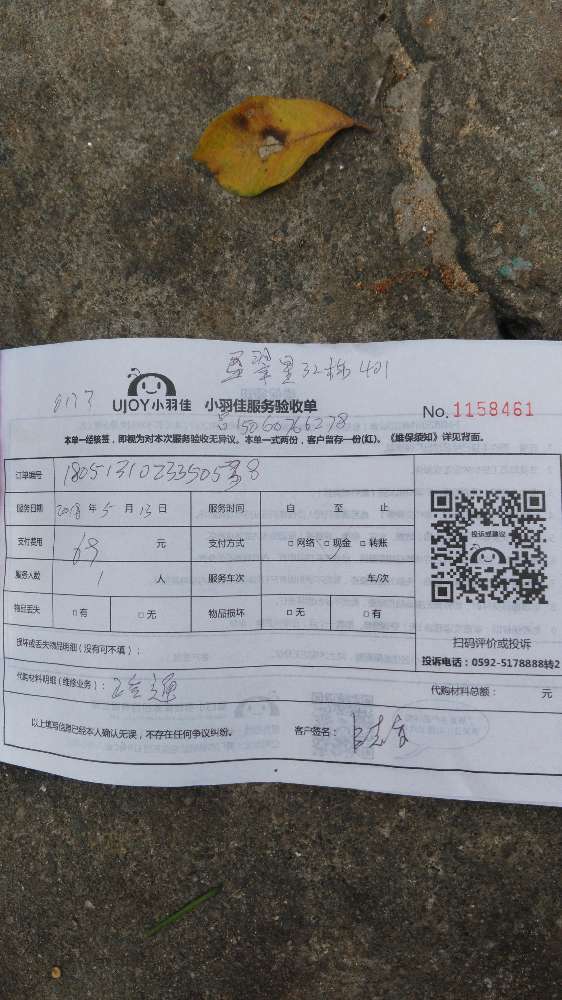 翠里32栋401
UJOY小羽佳 小羽佳服务验收单
No. 1158461
15060766278
本单一经核签，即视为对本次服务验收无异议。本单一式两份，客户留存一份(红)。《维保须知》详见背面。
订单编号
服务日期 2018 年 5 月 13 日 服务时间 自 至 止
支付费用 69 元 支付方式 □ 网络 □ 现金 □ 转账
服务人数 1 人 服务车次 车/次
物品丢失 □ 有 □ 无 物品损坏 □ 无 □ 有
损坏或丢失物品明细（没有可不填）：
代购材料明细（维修业务）：
以上填写信息已经本人确认无误，不存在任何争议纠纷。 客户签名：
投诉或建议
扫码评价或投诉
投诉电话：0592-5178888转2
代购材料总额： 元